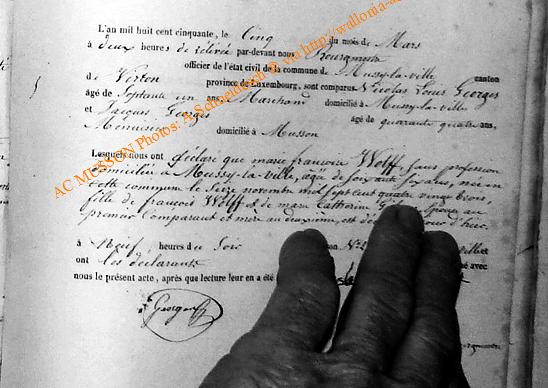 L'an mil huit cent cinquante, le Cinq du mois de Mars
à deux heures de relévée par-devant nous Bourgmestre
officier de l'état civil de la commune de Mussy-la-ville canton
d e Virton province de Luxembourg, sont comparus Nicolas Louis Georges
âgé de Septante un ans Marchand domicilié à Mussy-la-ville
et Jacques Georges âgé de quarante quatre ans,
Menuisier domicilié à Musson
Lesquels nous ont déclaré que marie françoise Wolff, sans profession
domiciliée à Mussy-la-ville, agée de soixante six ans, née en
cette commune le Seize novembre mil sept cent quatre vingt trois,
fille de françois Wolff & de marie Catherine épouse au
premier Comparant et mère au deuxième, est
à Neuf heures du Soir
ont les déclarants avec
nous le présent acte, après que lecture leur en a été
Georges
AC MUSSON Photos: A.Schneidesch © via http://wallonia-